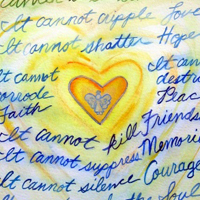 It cannot cripple Love
It cannot shatter Hope
It cannot
It cannot
corrode
Faith
It cannot kill Friends
It cannot suppress Memori
It cannot silence Courage
the Soul